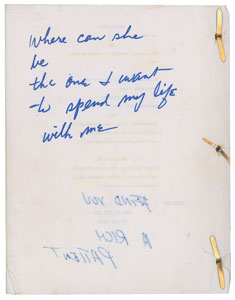 Where can she
be
the one I want
to spend my life
with me
SEND YOU
A RICH
PATIENT